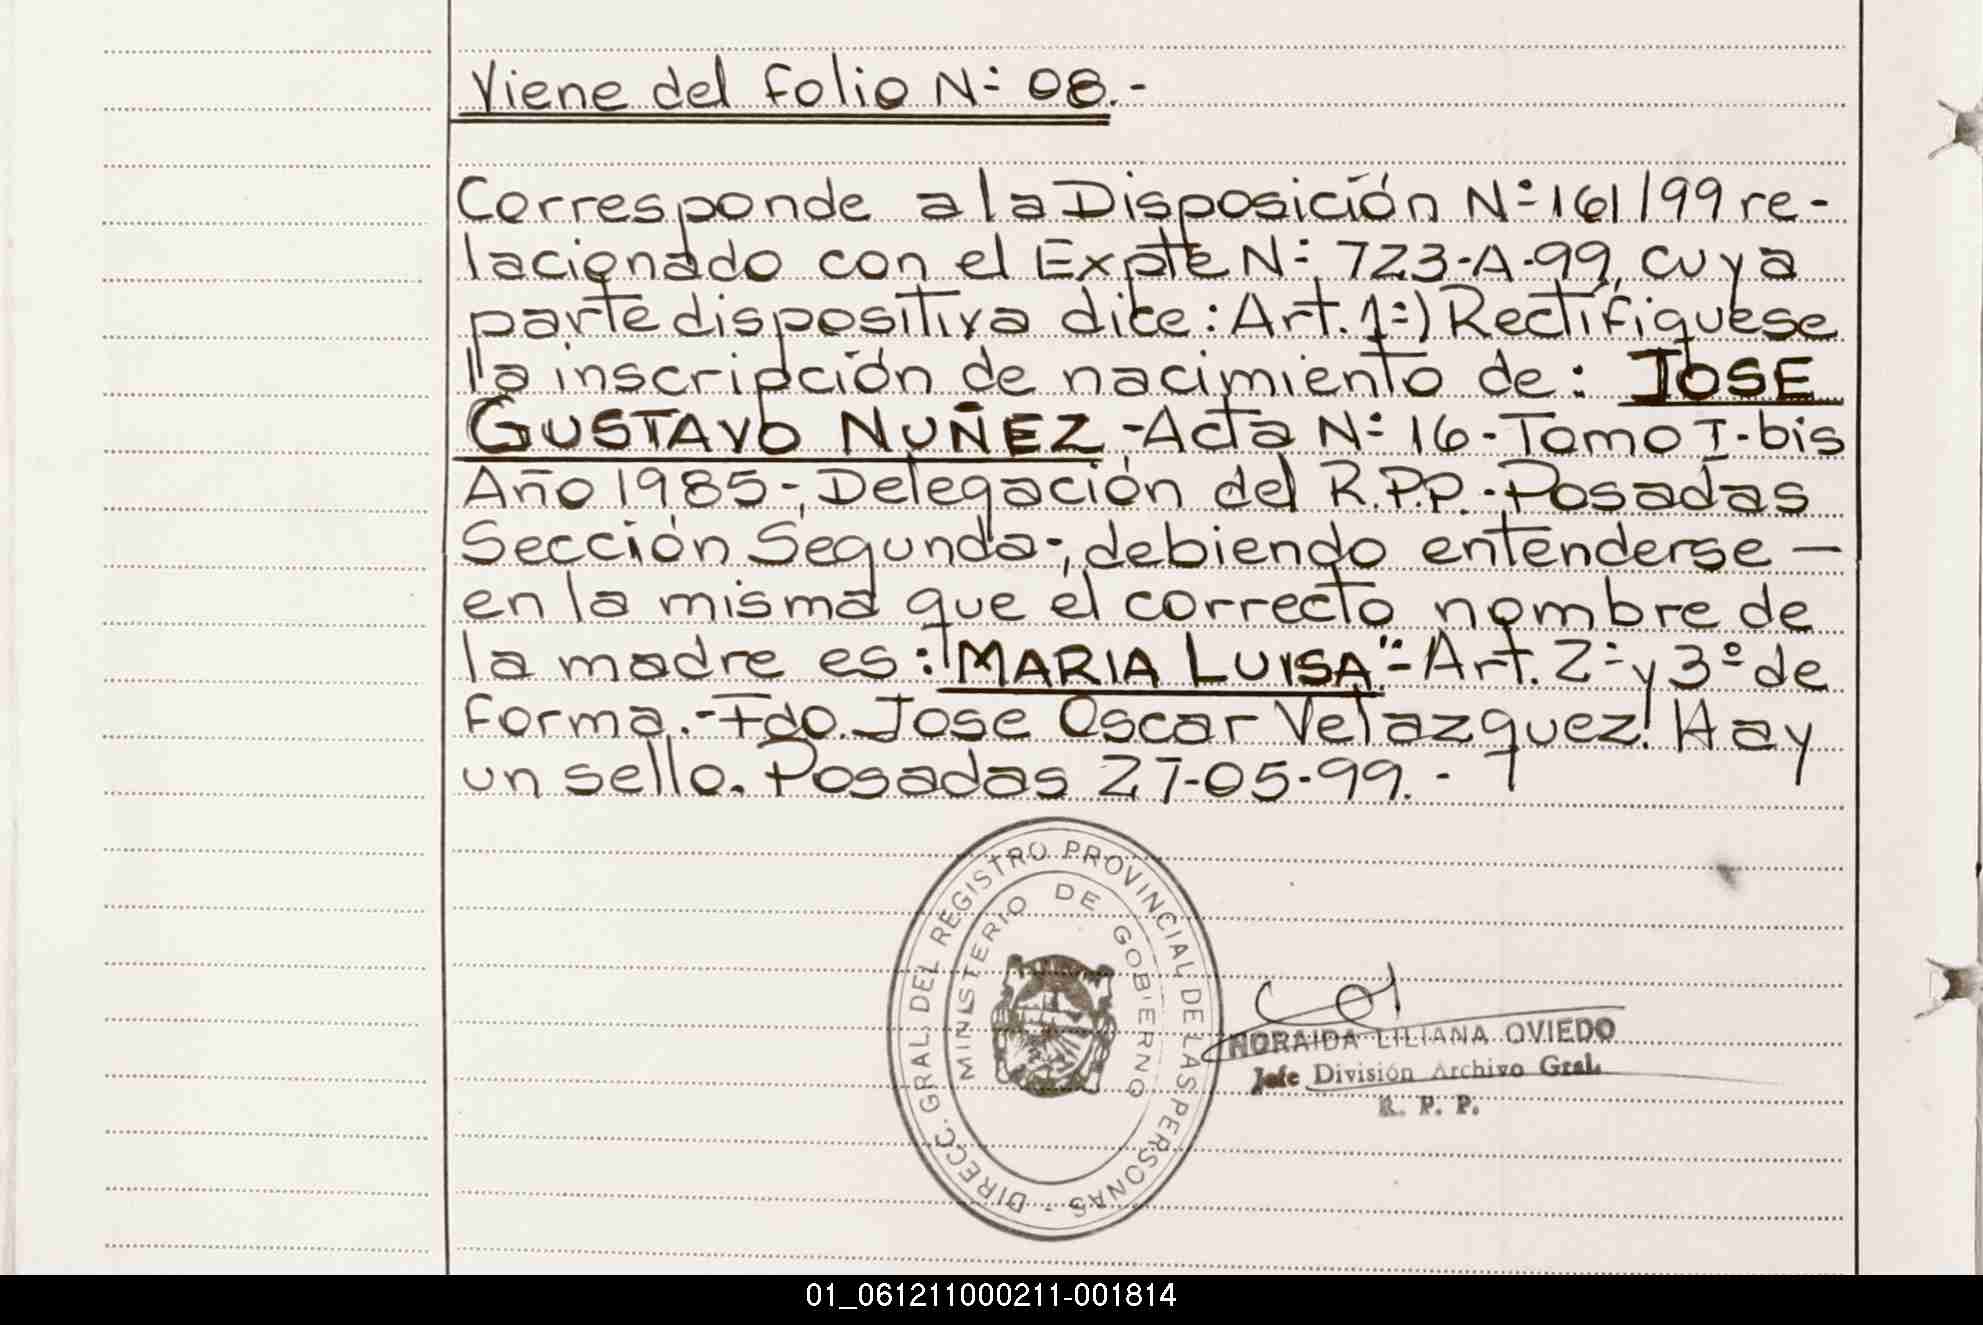 Viene del folio N: 08.-
Corresponde a la Disposición N: 161/99 re-
lacionado con el Expte N: 723-A-99, cuya
parte dispositiva dice: Art. 1:) Rectifíquese
la inscripción de nacimiento de: JOSE
GUSTAVO NUÑEZ -Acta N: 16 - Tomo I - bis
Año 1985-, Delegación del R.P.P. - Posadas
Sección Segunda-, debiendo entenderse —
en la misma que el correcto nombre de
la madre es: "MARIA LUISA".- Art. 2: y 3º de
forma.- Fdo. Jose Oscar Velazquez. Hay
un sello. Posadas 27-05-99. -
DIRECC. GRAL. DEL REGISTRO PROVINCIAL DE LAS PERSONAS -
MINISTERIO DE GOBIERNO
NORAIDA LILIANA OVIEDO
Jefe División Archivo Gral.
R. P. P.
01_061211000211-001814